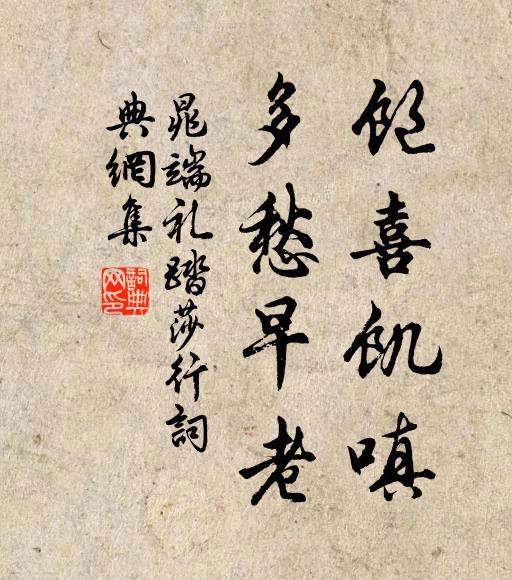 飽喜飢嗔
多愁早老
晁端礼踏莎行詞
典網集
詞典網印